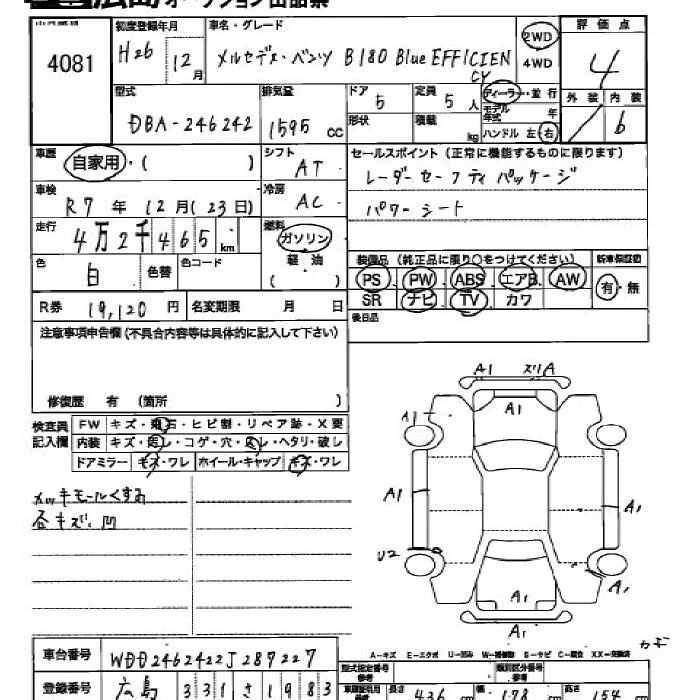 広島 オークション出品票
4081
初度登録年月
H26 12月
車名・グレード
メルセデス・ベンツ B180 Blue EFFICIENCY
2WD
4WD
評価点
4
外装 内装
6
型式
DBA-246242
排気量
1595 CC
ドア
5
形状
定員
5 人
積載
kg
ディーラー・並行
モデル年式 年
ハンドル 左・右
車歴
自家用・( )
シフト
AT
セールスポイント(正常に機能するものに限ります)
レーダーセーフティパッケージ
パワーシート
車検
R7 年 12月(23日)
冷房
AC
走行
4万2千465 km
燃料
ガソリン
軽油
( )
色
白
色替
色コード
装備品(純正品に限り○をつけてください)
PS PW ABS エアB AW
SR ナビ TV カワ
新車保証書
有・無
R券 19,120 円
名変期限 月 日
後日品
注意事項申告欄(不具合内容等は具体的に記入して下さい)
修復歴 有 (箇所 )
検査員記入欄
FW キズ・飛石・ヒビ割・リペア跡・X要
内装 キズ・汚レ・コゲ・穴・スレ・ヘタリ・破レ
ドアミラー キズ・ワレ ホイール・キャップ キズ・ワレ
メッキモールくすみ
各キズ、凹
A1 スリA
A1
A1
A1
A1
U2
A1
A1
A1
カギ
A-キズ E-エクボ U-凹み W-補修跡 S-サビ C-腐食 XX-交換済
車台番号 WDD2462422J287227
登録番号 広島 331 さ1983
型式指定番号
類別区分番号
長さ 436 cm 幅 178 cm 高さ 154 cm